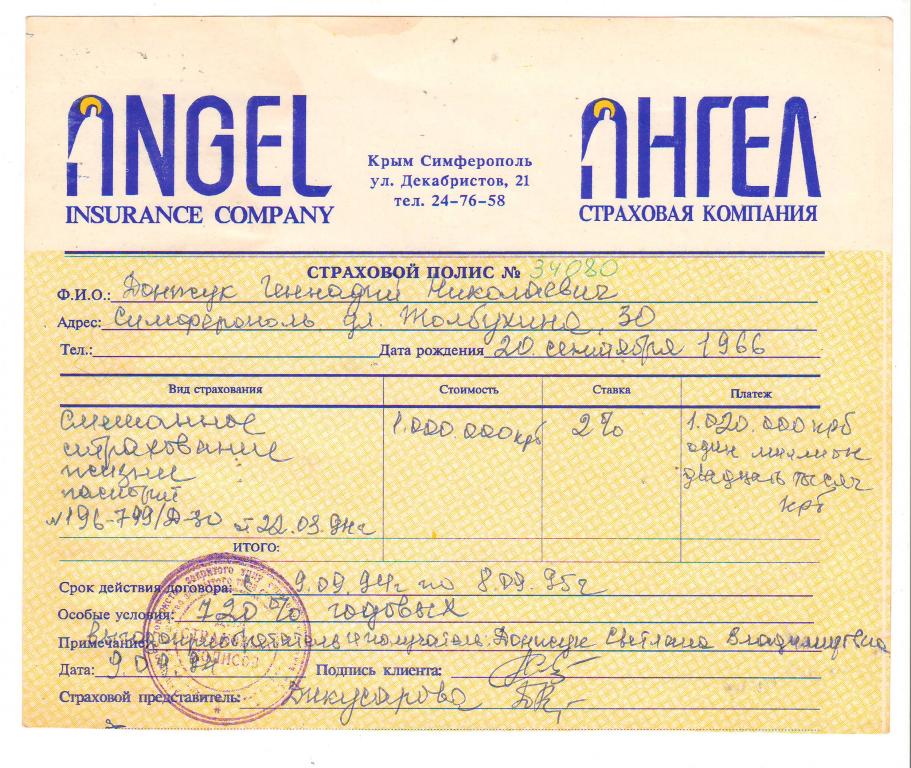 ANGEL
INSURANCE COMPANY
Крым Симферополь
ул. Декабристов, 21
тел. 24-76-58
АНГЕЛ
СТРАХОВАЯ КОМПАНИЯ
СТРАХОВОЙ ПОЛИС № 34080
Ф.И.О.: Донжук Геннадий Николаевич
Адрес: Симферополь ул. Толбухина, 30
Тел.: Дата рождения 20. сентября 1966
Вид страхования Стоимость Ставка Платеж
Смешанное 1.000.000крб 2% 1.020.000крб
страхование один миллион
жизни двадцать тысяч
паспорт крб
№196-799/Д-30 от 22.03.
ИТОГО:
Срок действия договора: с 9.09.94г по 8.09.95г
Особые условия: 720% годовых
Примечание: Донжук Светлана Владимировна
Дата: 9.09.94 Подпись клиента:
Страховой представитель: